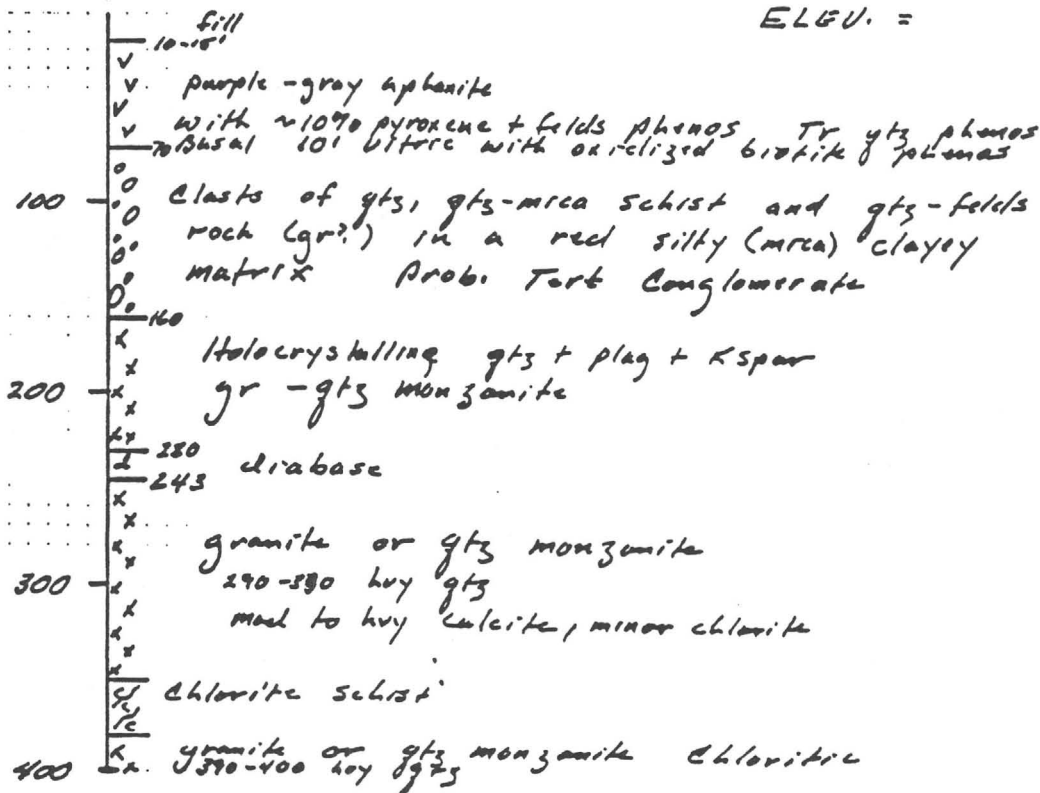 ELEV. =
fill
10-15'
purple-gray aphanite
with ~10% pyroxene + felds phenos Tr qtz phenos
70 Basal 10' vitric with oxidized biotite phenos
100 Clasts of qtz, qtz-mica schist and qtz-felds
rock (gr?) in a red silty (mica) clayey
matrix Prob. Tert Conglomerate
160
Holocrystalline qtz + plag + Kspar
200 gr - qtz monzonite
230
d diabase
243
granite or qtz monzonite
300 290-330 hvy qtz
mod to hvy calcite, minor chlorite
Chlorite schist
granite or qtz monzonite Chloritic
400 390-400 hvy qtz